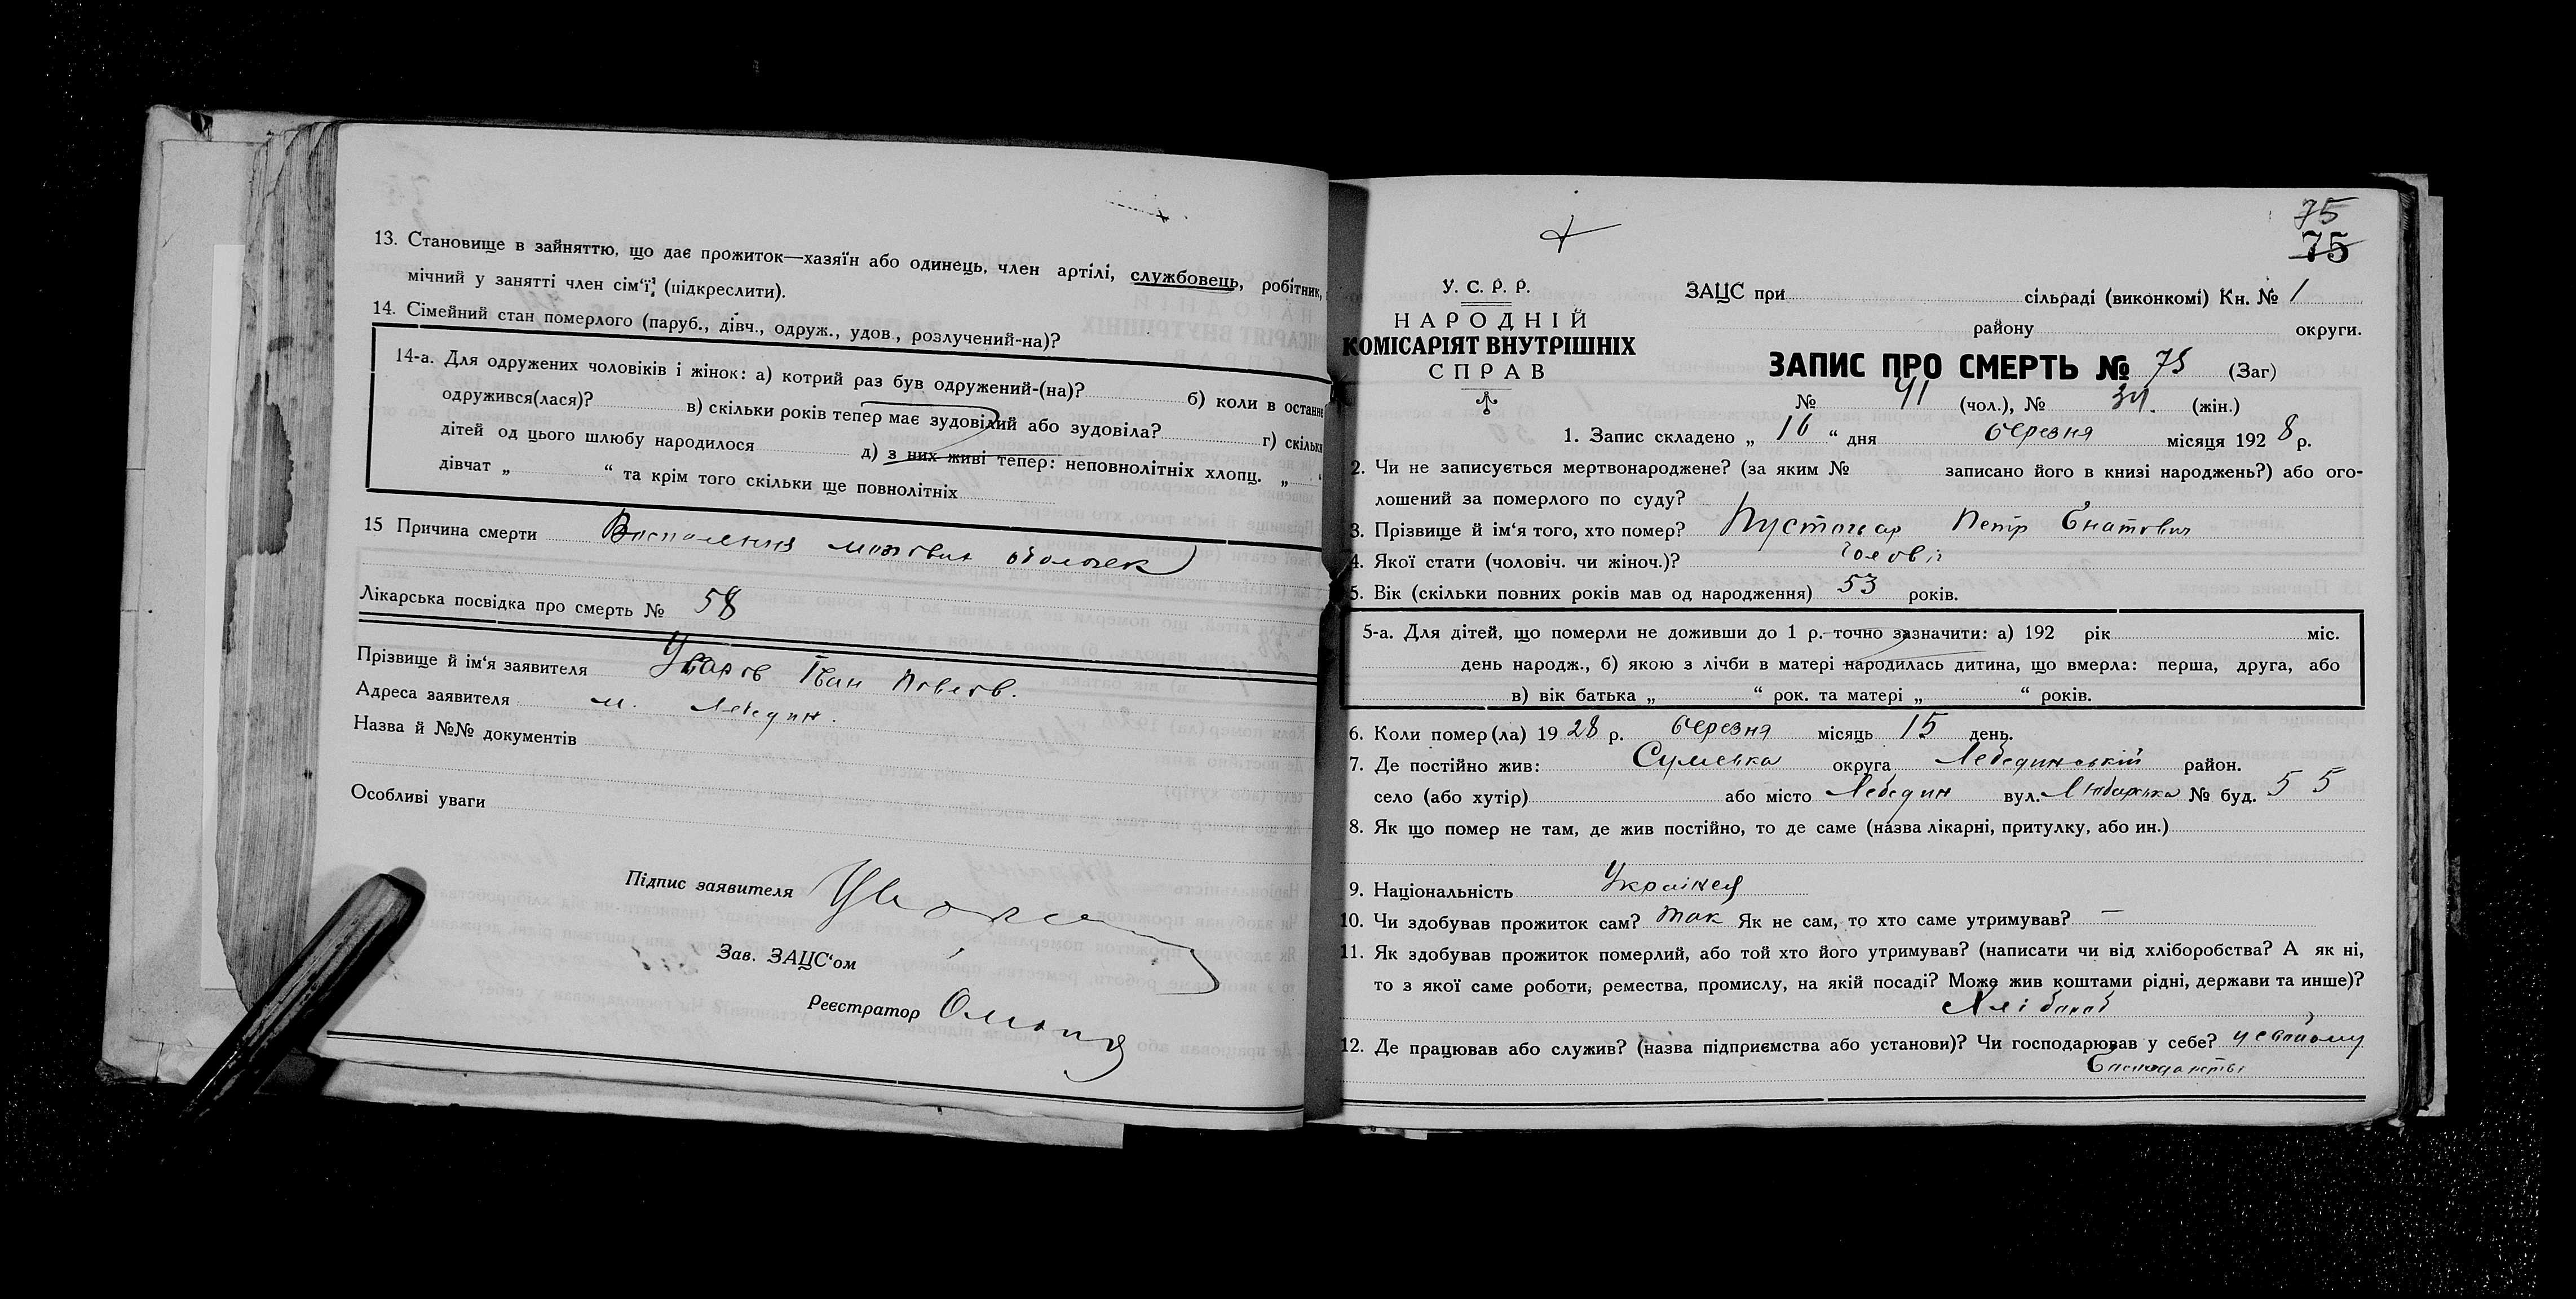 13. Становище в зайняттю, що дає прожиток—хазяїн або одинець, член артілі, службовець, робітник,
мічний у занятті член сім'ї; (підкреслити).
14. Сімейний стан померлого (паруб., дівч., одруж., удов., розлучений-на)?
14-а. Для одружених чоловіків і жінок: а) котрий раз був одружений-(на)? б) коли в останнє
одружився(лася)? в) скільки років тепер має зудовілий або зудовіла? г) скільки
дітей од цього шлюбу народилося д) з них живі тепер: неповнолітніх хлопц. „ “
дівчат „ “ та крім того скільки ще повнолітніх
15 Причина смерти Воспалення мозгових оболочек
Лікарська посвідка про смерть № 58
Прізвище й ім'я заявителя Уваров Іван Павлов.
Адреса заявителя м. Лебедин.
Назва й №№ документів
Особливі уваги
Підпис заявителя
Зав. ЗАЦС'ом
Реєстратор
75
75
У. С. Р. Р.
НАРОДНІЙ
КОМІСАРІЯТ ВНУТРІШНІХ
СПРАВ
ЗАЦС при сільраді (виконкомі) Кн. № 1
району округи.
ЗАПИС ПРО СМЕРТЬ № 75 (Заг)
№ 41 (чол.), № 34. (жін.)
1. Запис складено „ 16 “ дня березня місяця 192 8 р.
2. Чи не записується мертвонароджене? (за яким № записано його в книзі народжень?) або ого-
лошений за померлого по суду?
3. Прізвище й ім'я того, хто помер? Петр
4. Якої стати (чоловіч. чи жіноч.)? Чолові
5. Вік (скільки повних років мав од народження) 53 років.
5-а. Для дітей, що померли не доживши до 1 р. точно зазначити: а) 192 рік міс.
день народж., б) якою з лічби в матері народилась дитина, що вмерла: перша, друга, або
в) вік батька „ “ рок. та матері „ “ років.
6. Коли помер(ла) 19 28 р. березня місяць 15 день.
7. Де постійно жив: Сумська округа Лебединський район.
село (або хутір) або місто Лебедин вул. № буд. 55
8. Як що помер не там, де жив постійно, то де саме (назва лікарні, притулку, або ин.)
9. Національність Українец
10. Чи здобував прожиток сам? так Як не сам, то хто саме утримував? —
11. Як здобував прожиток померлий, або той хто його утримував? (написати чи від хліборобства? А як ні,
то з якої саме роботи, ремества, промислу, на якій посаді? Може жив коштами рідні, держави та инше)?
Хлібороб
12. Де працював або служив? (назва підприємства або установи)? Чи господарював у себе? у свойому
Господарстві